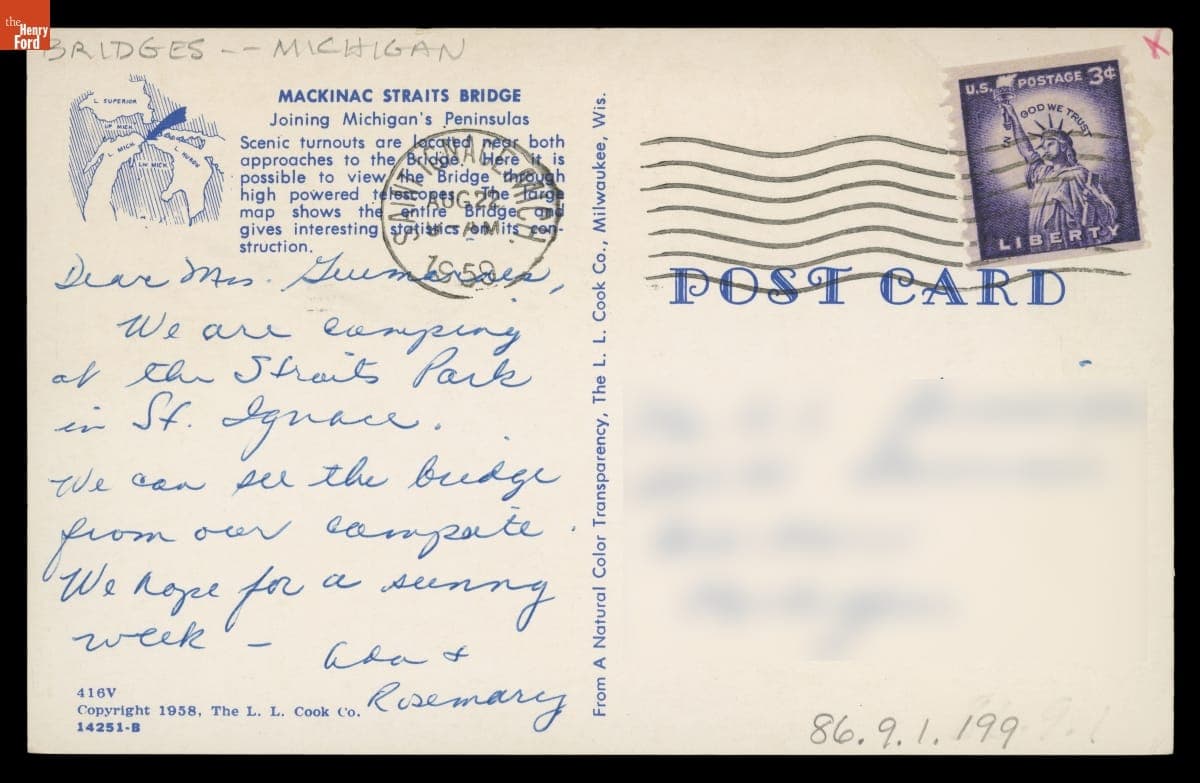 the
Henry
Ford
BRIDGES -- MICHIGAN
L. SUPERIOR
UP. MICH.
L. MICH.
L. HURON
LW. MICH.
MACKINAC STRAITS BRIDGE
Joining Michigan's Peninsulas
Scenic turnouts are located near both
approaches to the Bridge. Here it is
possible to view the Bridge through
high powered telescopes. The large
map shows the entire Bridge and
gives interesting statistics on its con-
struction.
SAINT IGNACE MICH.
AUG 22
AM
1959
U.S. POSTAGE 3¢
IN GOD WE TRUST
LIBERTY
POST CARD
Dear Mrs.
We are camping
at the Straits Park
in St. Ignace.
We can see the bridge
from our campsite.
We hope for a sunny
week –
Ada &
Rosemary
416V
Copyright 1958, The L. L. Cook Co.
14251-B
From A Natural Color Transparency, The L. L. Cook Co., Milwaukee, Wis.
86.9.1.199